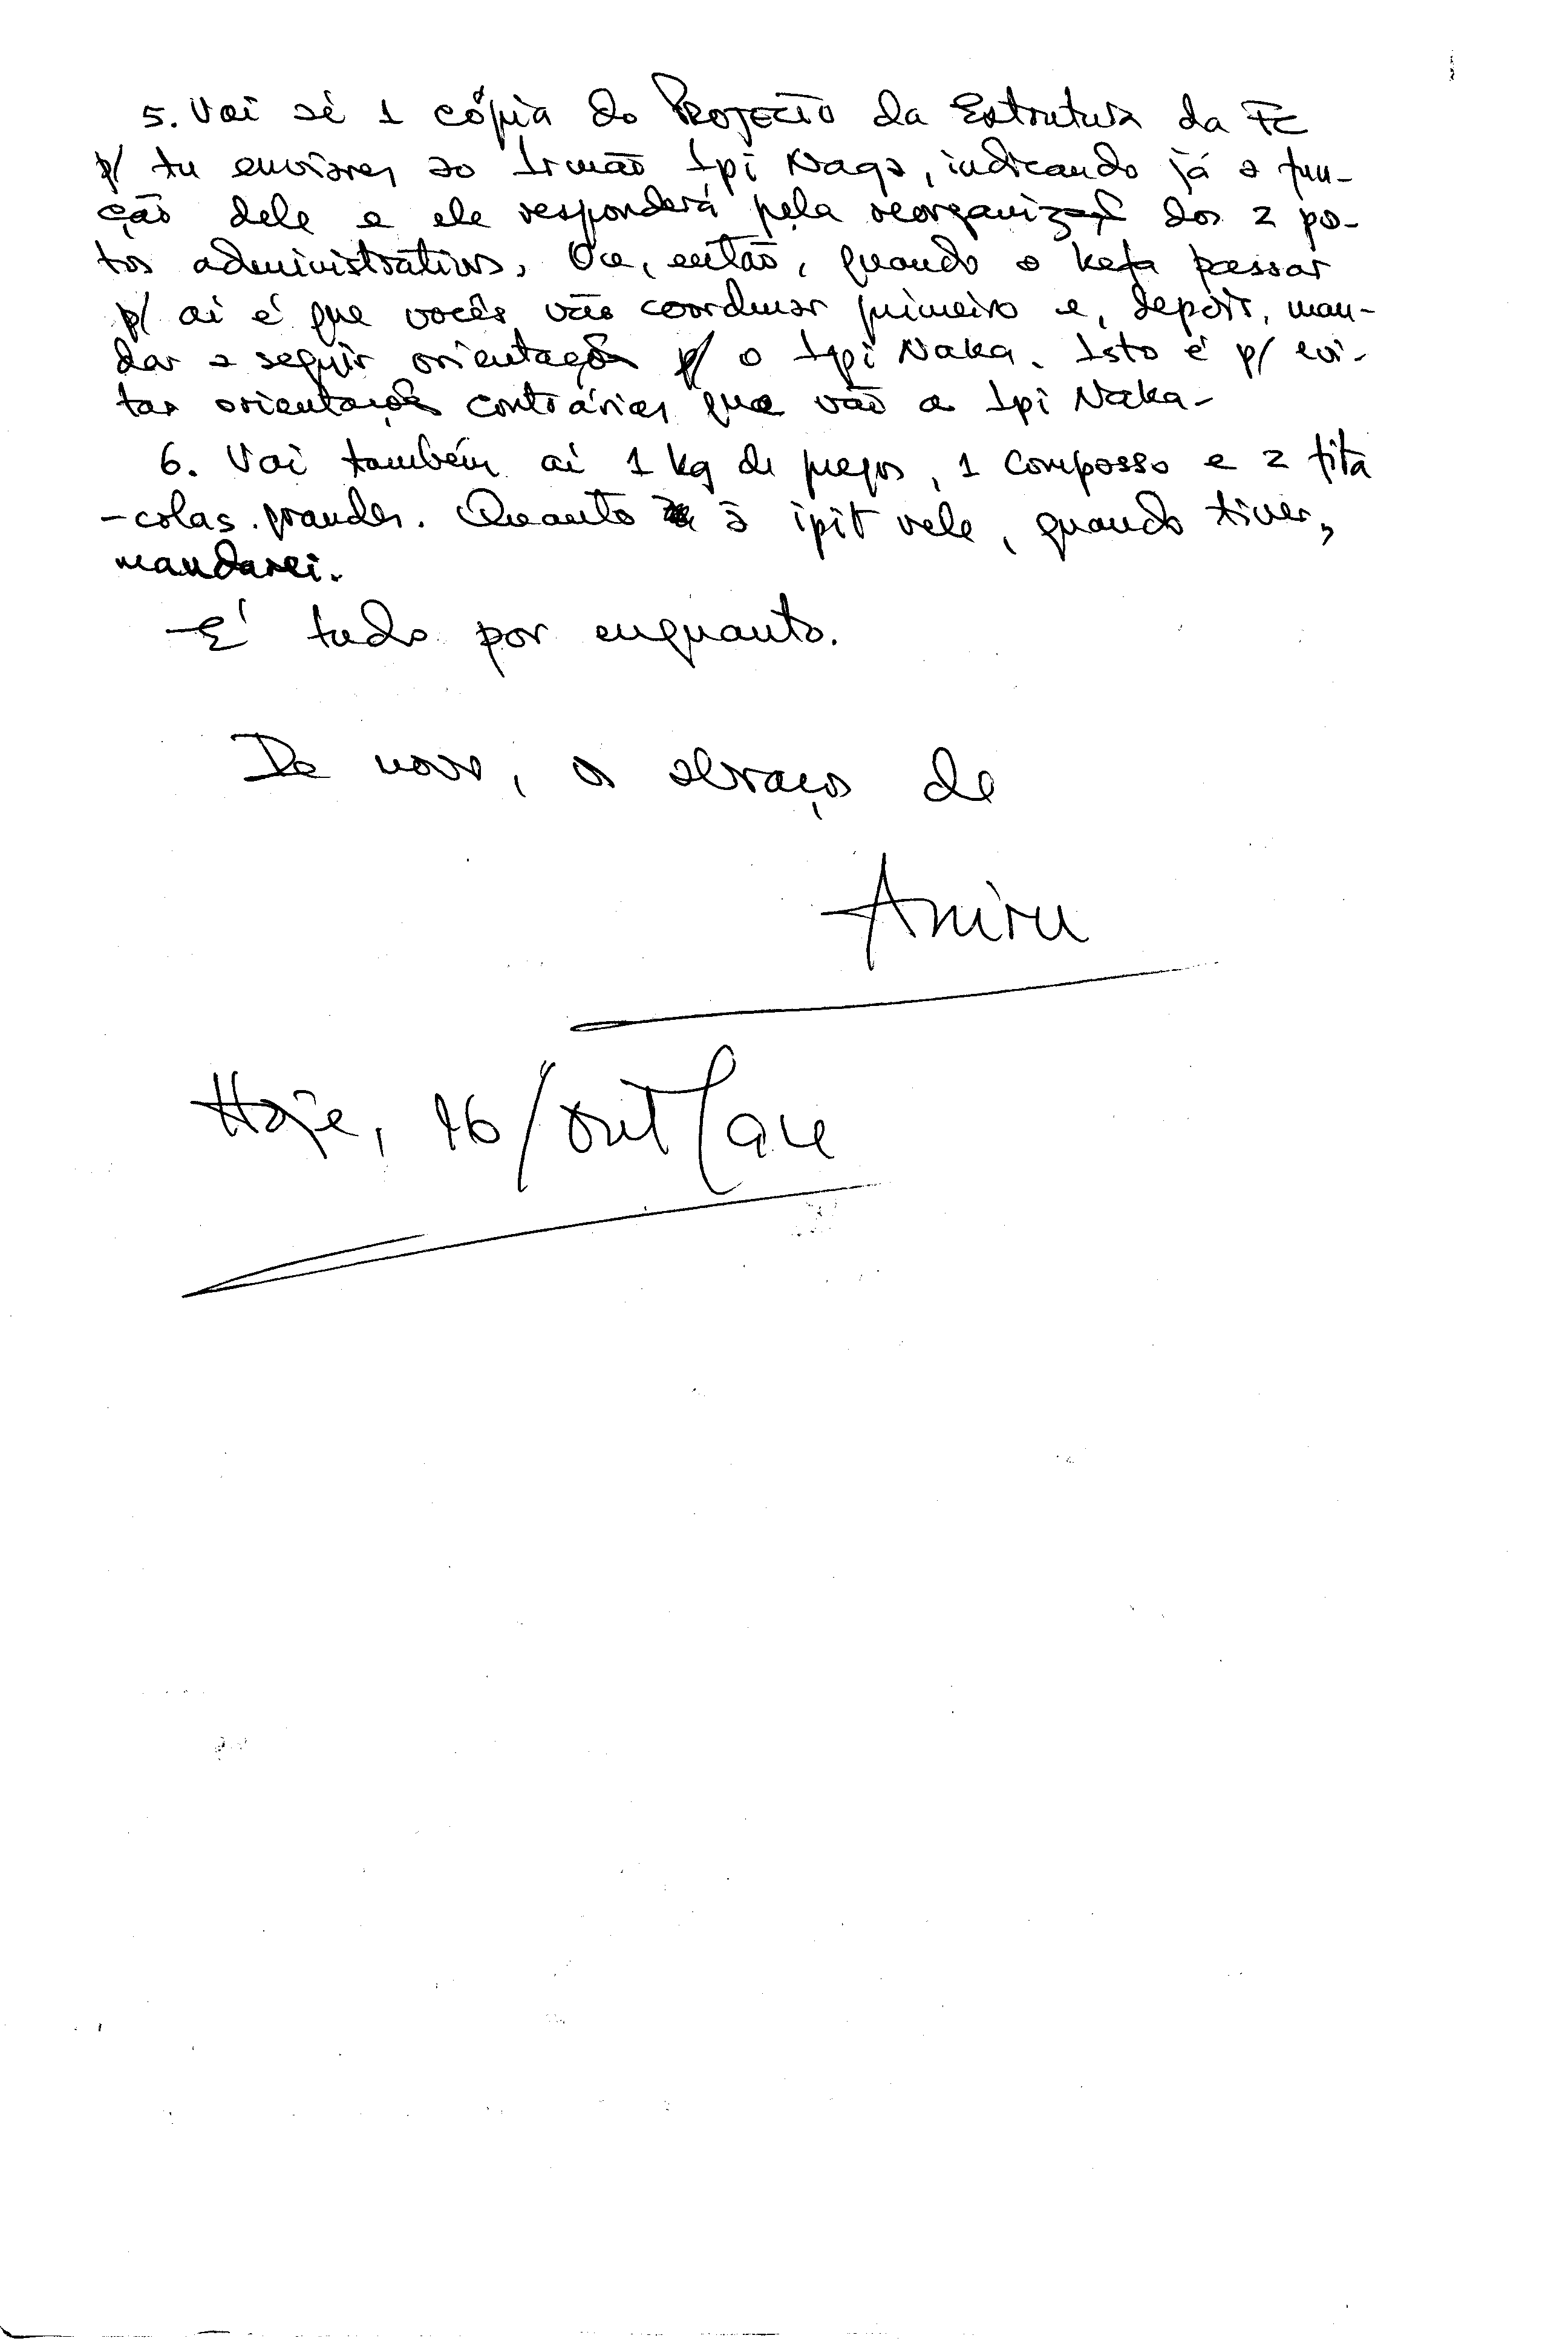 5. Vai aí 1 cópia do PROJECTO da Estrutura da FC
p/ tu enviares ao Irmão Ipi Naga, indicando já a fun-
ção dele e ele responderá pela reorganizaç dos 2 po-
tos administrativos. Ou, então, quando o kefa passar
p/ aí é que vocês vão coordenar primeiro e, depois, man-
dar a seguir orientação p/ o Ipi Naka. Isto é p/ evi-
tar orientações contrárias que vão a Ipi Naka-
6. Vai também aí 1 kg de pregos, 1 compasso e 2 fita
-colas grandes. Quanto à ipit vele, quando tiver,
mandarei.
-É tudo por enquanto.
De novo, o abraço de
Amiru
Hoje, 16/out/94